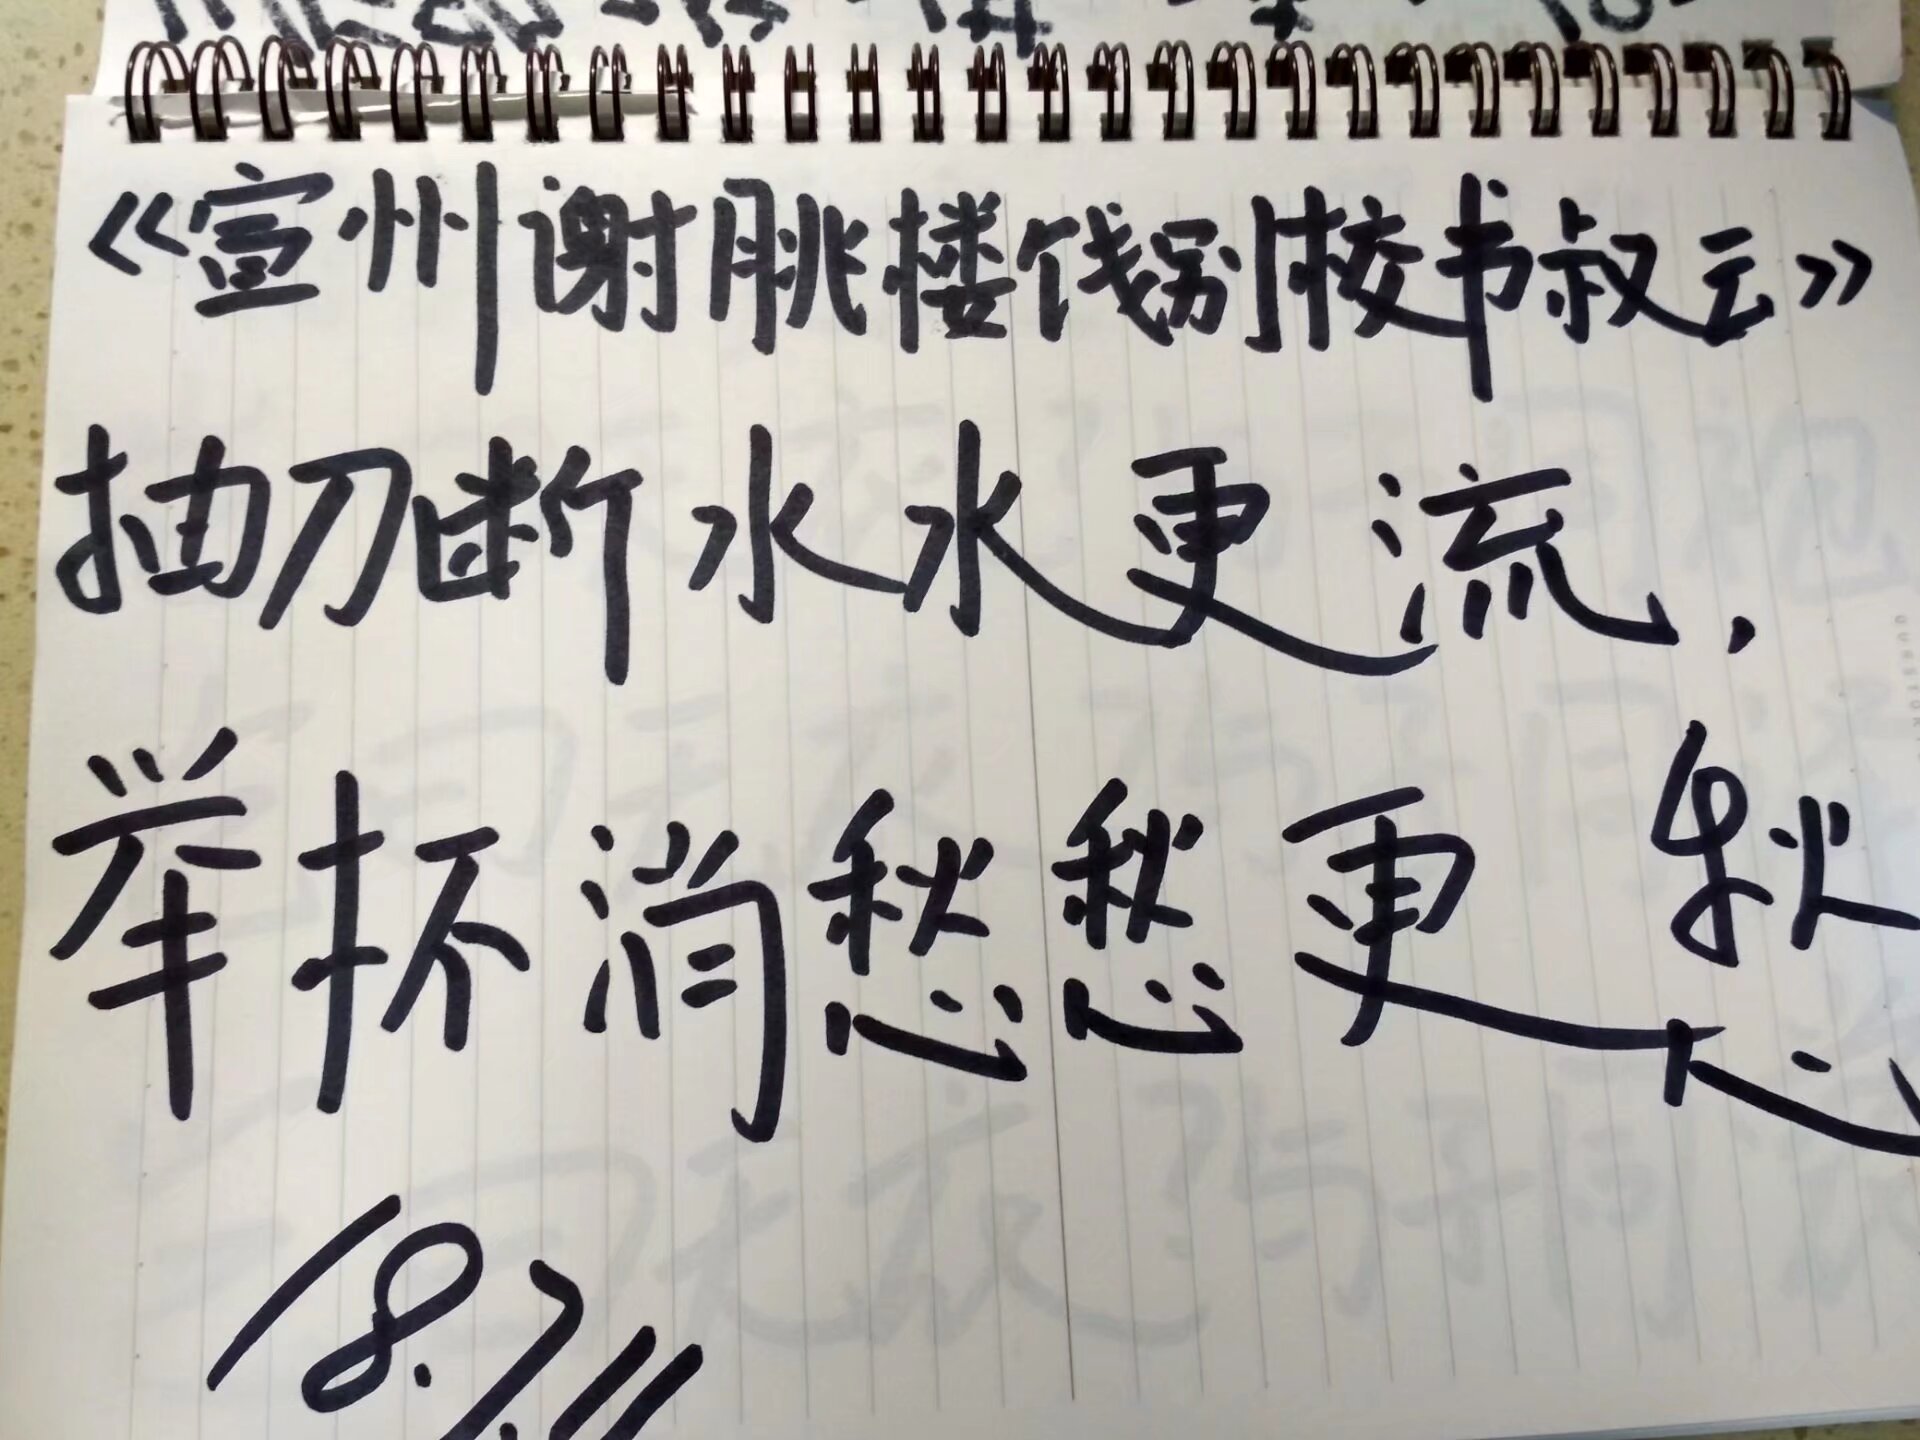 《宣州谢朓楼饯别校书叔云》
抽刀断水水更流，
举杯消愁愁更愁
18.7.11